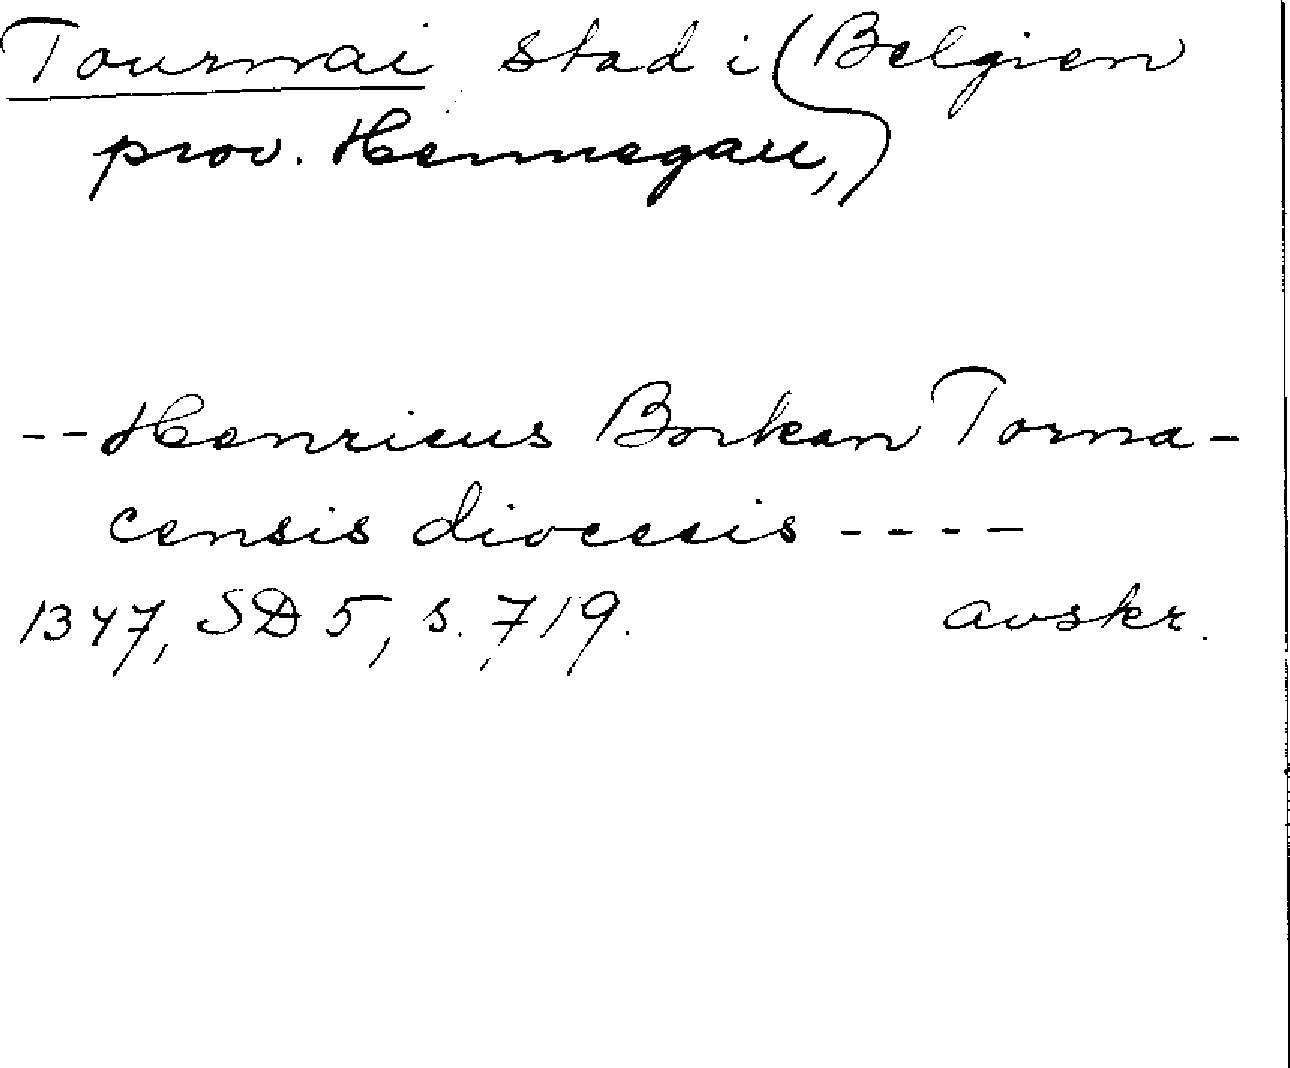 Tournai stad i (Belgien
prov. Hennegau,)
-- Henricus Borkan Torna-
censis diocesis ----
1347, SD 5, s. 719. avskr.